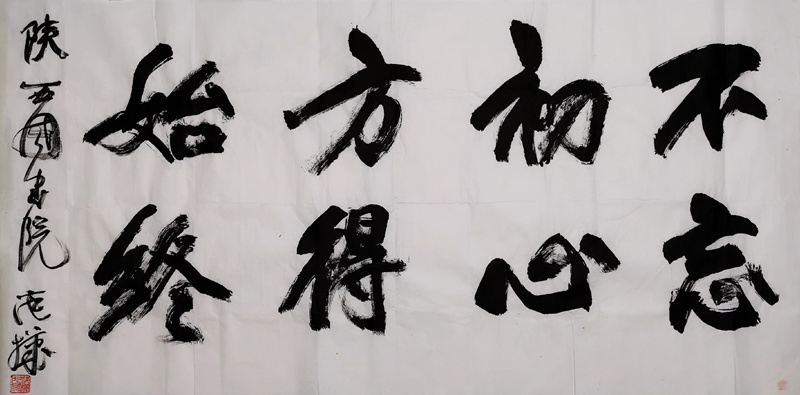 不忘
初心
方得
始终
陕西国画院范华